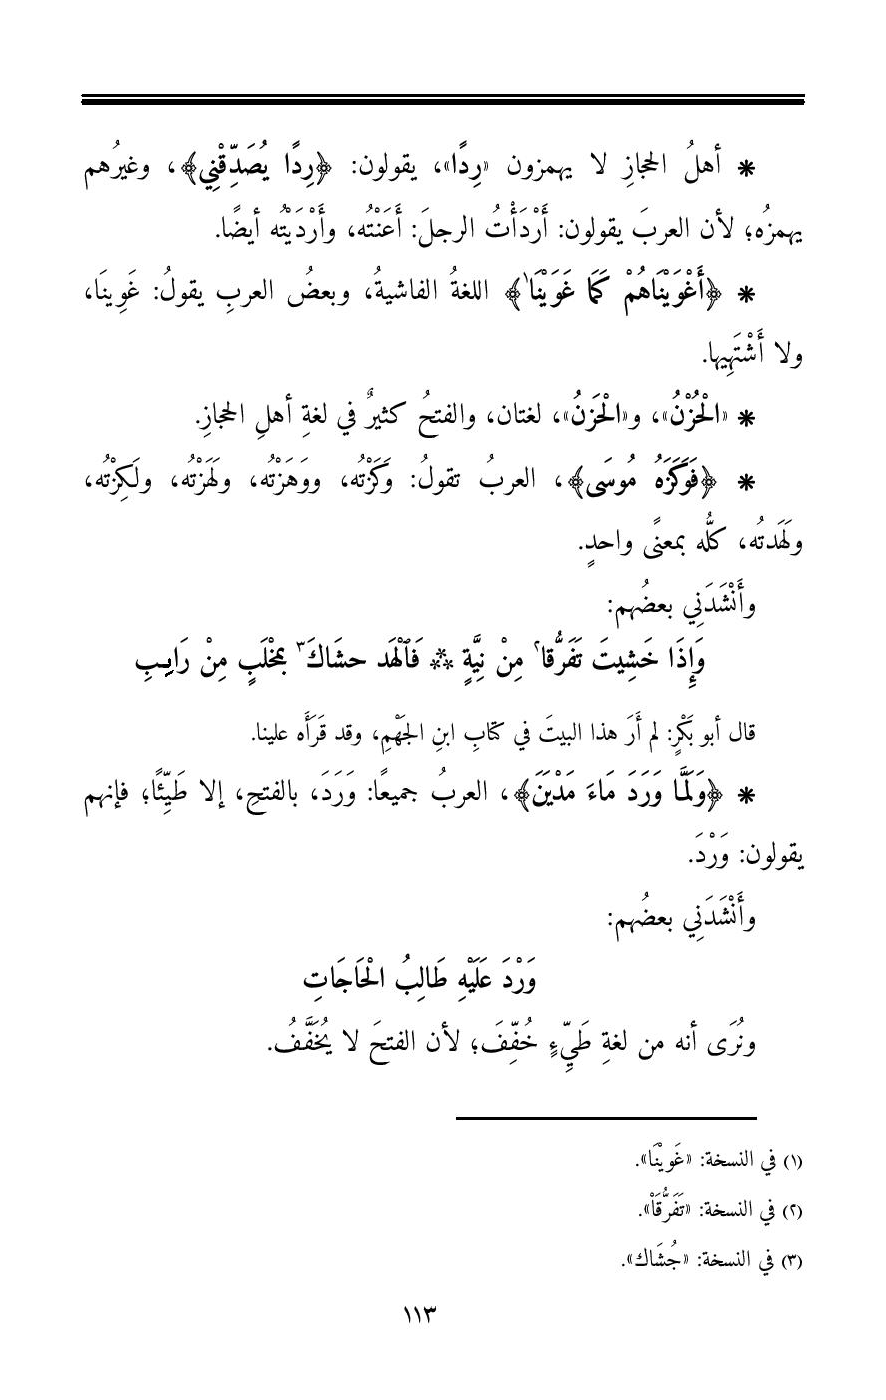 * أهلُ الحجازِ لا يهمزون «رِدًا»، يقولون: ﴿رِدًا يُصَدِّقْنِي﴾، وغيرُهم
يهمزُه؛ لأن العربَ يقولون: أَرْدَأْتُ الرجلَ: أَعَنْتُه، وأَرْدَيْتُه أيضًا.
* ﴿أَغْوَيْنَاهُمْ كَمَا غَوَيْنَا١﴾ اللغةُ الفاشيةُ، وبعضُ العربِ يقولُ: غَوِينَا،
ولا أَشْتَهِيها.
* «الْحُزْنُ»، و«الْحَزَنُ»، لغتان، والفتحُ كثيرٌ في لغةِ أهلِ الحجازِ.
* ﴿فَوَكَزَهُ مُوسَى﴾، العربُ تقولُ: وَكَزْتُه، ووَهَزْتُه، ولَهَزْتُه، ولَكِزْتُه،
ولَهَدتُه، كلُّه بمعنًى واحدٍ.
وأَنْشَدَنِي بعضُهم:
وَإِذَا خَشِيتَ تَفَرُّقا٢ مِنْ نِيَّةٍ ⁂ فَٱلْهَد حشَاكَ٣ بمخْلَبٍ مِنْ رَايِبِ
قال أبو بَكْرٍ: لم أَرَ هذا البيتَ في كتابِ ابنِ الجَهْمِ، وقد قَرَأَه علينا.
* ﴿وَلَمَّا وَرَدَ مَاءَ مَدْيَنَ﴾، العربُ جميعًا: وَرَدَ، بالفتحِ، إلا طَيِّئًا؛ فإنهم
يقولون: وَرْدَ.
وأَنْشَدَنِي بعضُهم:
وَرْدَ عَلَيْهِ طَالِبُ الْحَاجَاتِ
ونُرَى أنه من لغةِ طَيِّءٍ خُفِّفَ؛ لأن الفتحَ لا يُخَفَّفُ.
(١) في النسخة: «غَوِيْنَا».
(٢) في النسخة: «تَفَرُّقَاْ».
(٣) في النسخة: «جُشَاك».
١١٣